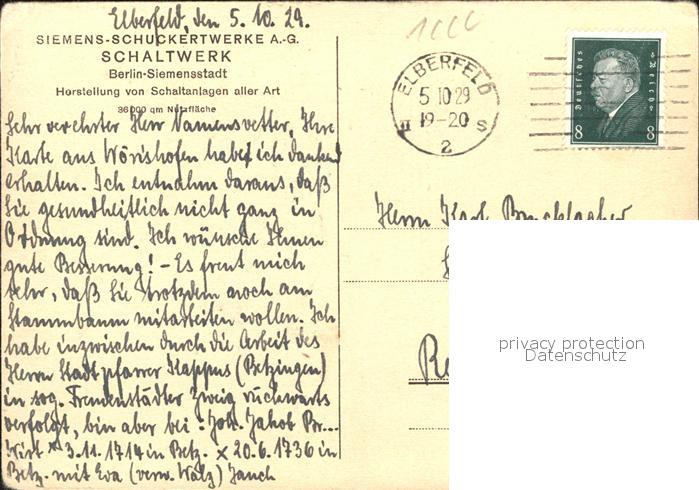 Elberfeld, den 5.10.29.
SIEMENS-SCHUCKERTWERKE A.-G.
SCHALTWERK
Berlin-Siemensstadt
Herstellung von Schaltanlagen aller Art
36000 qm Nutzfläche
Sehr verehrter Herr Namensvetter, Ihre
Karte aus Wörishofen habe ich dankend
erhalten. Ich entnahm daraus, daß
Sie gesundheitlich nicht ganz in
Ordnung sind. Ich wünsche Ihnen
gute Besserung! - Es freut mich
sehr, daß Sie trotzdem noch am
Stammbaum mitarbeiten wollen. Ich
habe inzwischen durch die Arbeit des
Herrn Stadtpfarrer Kappus (Betzingen)
in sog. Freudenstädter Zweig rückwärts
verfolgt, bin aber bei: Joh. Jakob Br...
Wirt * 3.11.1714 in Betz. x 20.6.1736 in
Betz. mit Eva (verw. Walz) Jauch
ELBERFELD
5 10 29
II 19-20 S
2
Deutsches Reich
8 8
Herrn Karl
privacy protection
Datenschutz